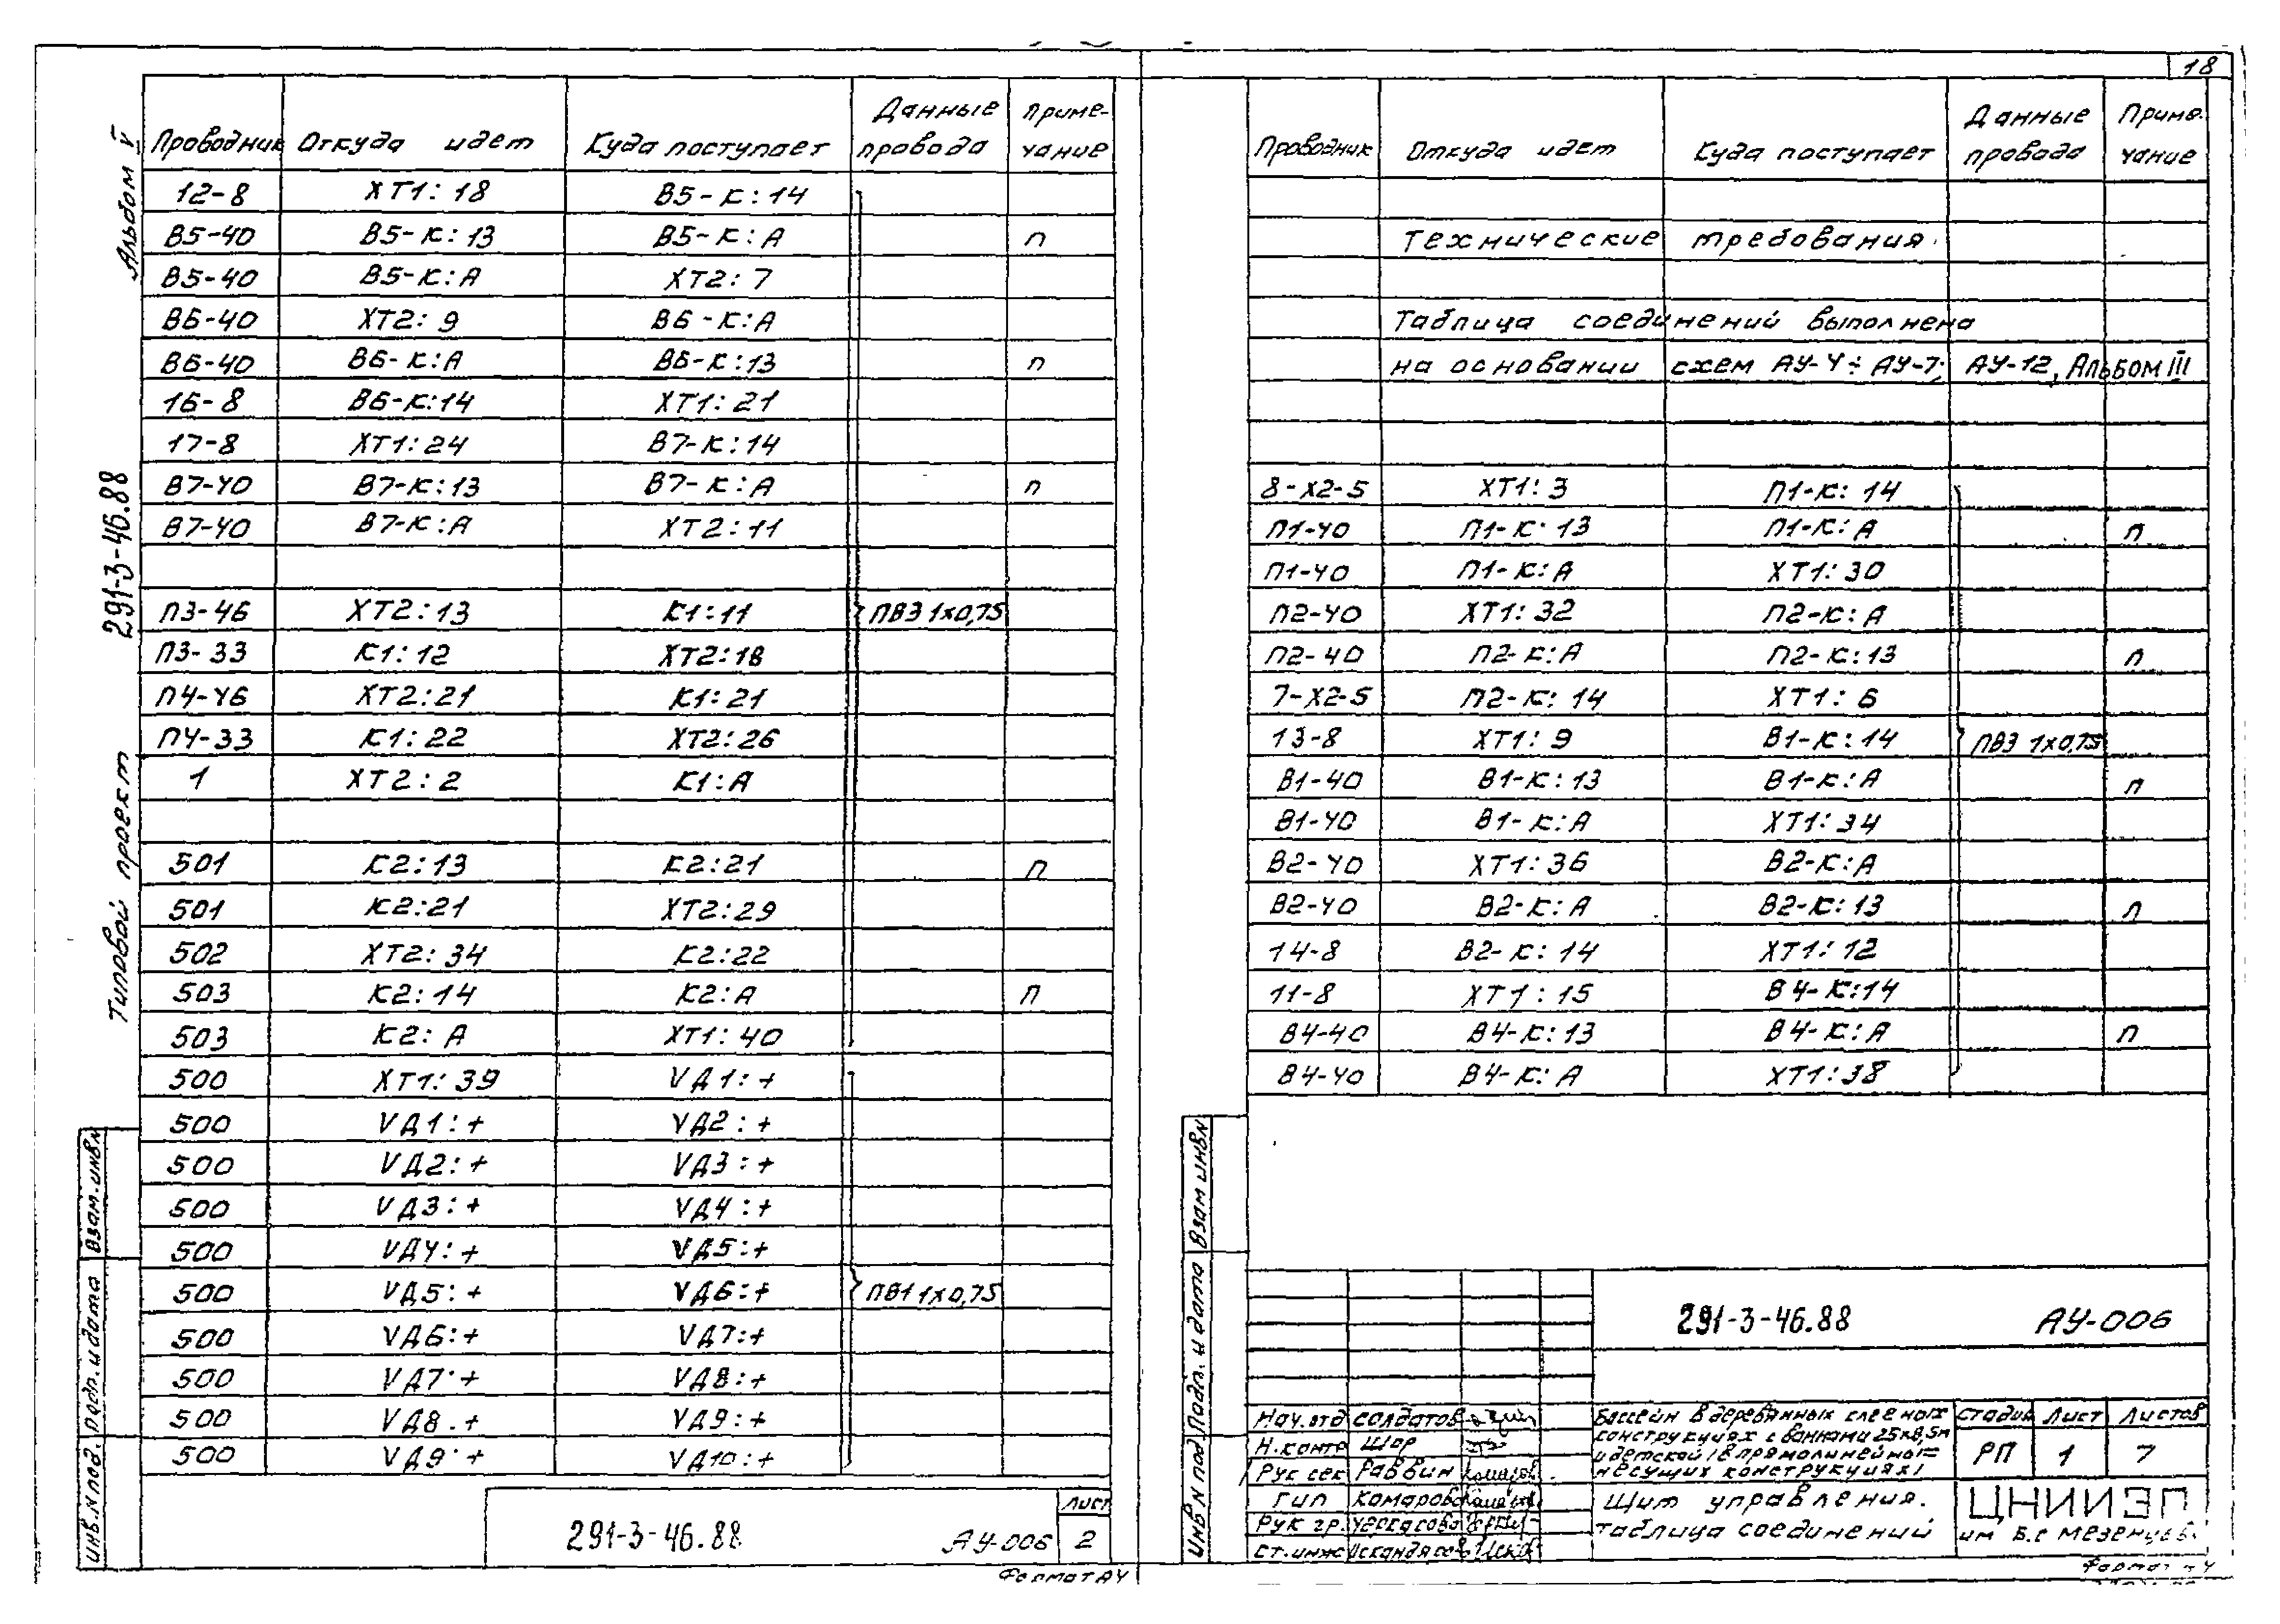 18
Альбом V
291-3-46.88
Типовой проект
Проводник Откуда идет Куда поступает Данные провода Примечание
12-8 ХТ1:18 В5-К:14
В5-40 В5-К:13 В5-К:А п
В5-40 В5-К:А ХТ2:7
В6-40 ХТ2:9 В6-К:А
В6-40 В6-К:А В6-К:13 п
16-8 В6-К:14 ХТ1:21
17-8 ХТ1:24 В7-К:14
В7-40 В7-К:13 В7-К:А п
В7-40 В7-К:А ХТ2:11
П3-46 ХТ2:13 К1:11 ПВ3 1х0,75
П3-33 К1:12 ХТ2:18
П4-46 ХТ2:21 К1:21
П4-33 К1:22 ХТ2:26
1 ХТ2:2 К1:А
501 К2:13 К2:21 п
501 К2:21 ХТ2:29
502 ХТ2:34 К2:22
503 К2:14 К2:А п
503 К2:А ХТ1:40
500 ХТ1:39 VД1:+
500 VД1:+ VД2:+
500 VД2:+ VД3:+
500 VД3:+ VД4:+
500 VД4:+ VД5:+
500 VД5:+ VД6:+ ПВ1 1х0,75
500 VД6:+ VД7:+
500 VД7:+ VД8:+
500 VД8:+ VД9:+
500 VД9:+ VД10:+
Взам.инвN
Подп. и дата
Инв.N под.
291-3-46.88 АУ-006 Лист 2
Формат А4
Проводник Откуда идет Куда поступает Данные провода Примечание
Технические требования.
Таблица соединений выполнена
на основании схем АУ-4÷АУ-7; АУ-12, Альбом III
8-Х2-5 ХТ1:3 П1-К:14
П1-40 П1-К:13 П1-К:А п
П1-40 П1-К:А ХТ1:30
П2-40 ХТ1:32 П2-К:А
П2-40 П2-К:А П2-К:13 п
7-Х2-5 П2-К:14 ХТ1:6
13-8 ХТ1:9 В1-К:14 ПВ3 1х0,75
В1-40 В1-К:13 В1-К:А п
В1-40 В1-К:А ХТ1:34
В2-40 ХТ1:36 В2-К:А
В2-40 В2-К:А В2-К:13 п
14-8 В2-К:14 ХТ1:12
11-8 ХТ1:15 В4-К:14
В4-40 В4-К:13 В4-К:А п
В4-40 В4-К:А ХТ1:38
Взам инвN
Подп. и дата
Инв N под
291-3-46.88 АУ-006
Нач.отд Солдатов
Н.контр Шор
Рук сек Раввин
Гип Комаров
Рук гр. Черкасова
Ст.инж Искандяров
Бассейн в деревянных клееных
конструкциях с ваннами 25х8,5м
и детской (в прямолинейно-
несущих конструкциях)
Стадия Лист Листов
РП 1 7
Щит управления.
Таблица соединений
ЦНИИЭП
им Б.С Мезенцева
Формат А4